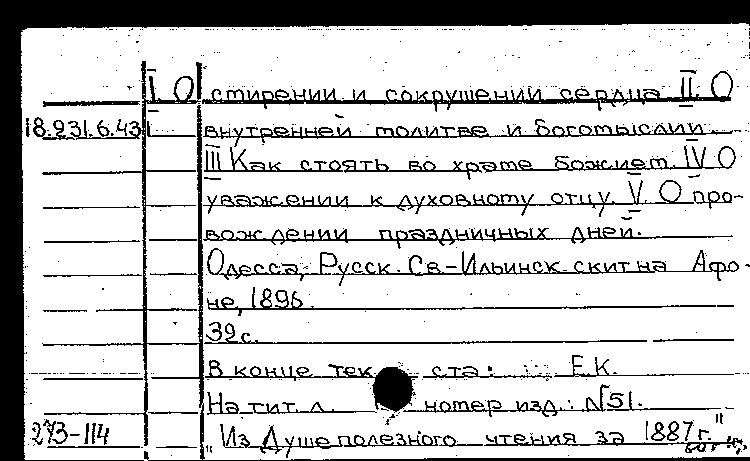 I. О смирении и сокрушении сердца II. О
18.231.6.43 внутренней молитве и богомыслии.
III Как стоять во храме Божием. IV О
уважении к духовному отцу. V О про-
вождении праздничных дней.
Одесса, Русск. Св-Ильинск. скит на Афо-
не, 1896.
32 с.
В конце текста: Е.К.
На тит. л. номер изд.: №51.
273-114 "Из Душеполезного чтения за 1887 г."